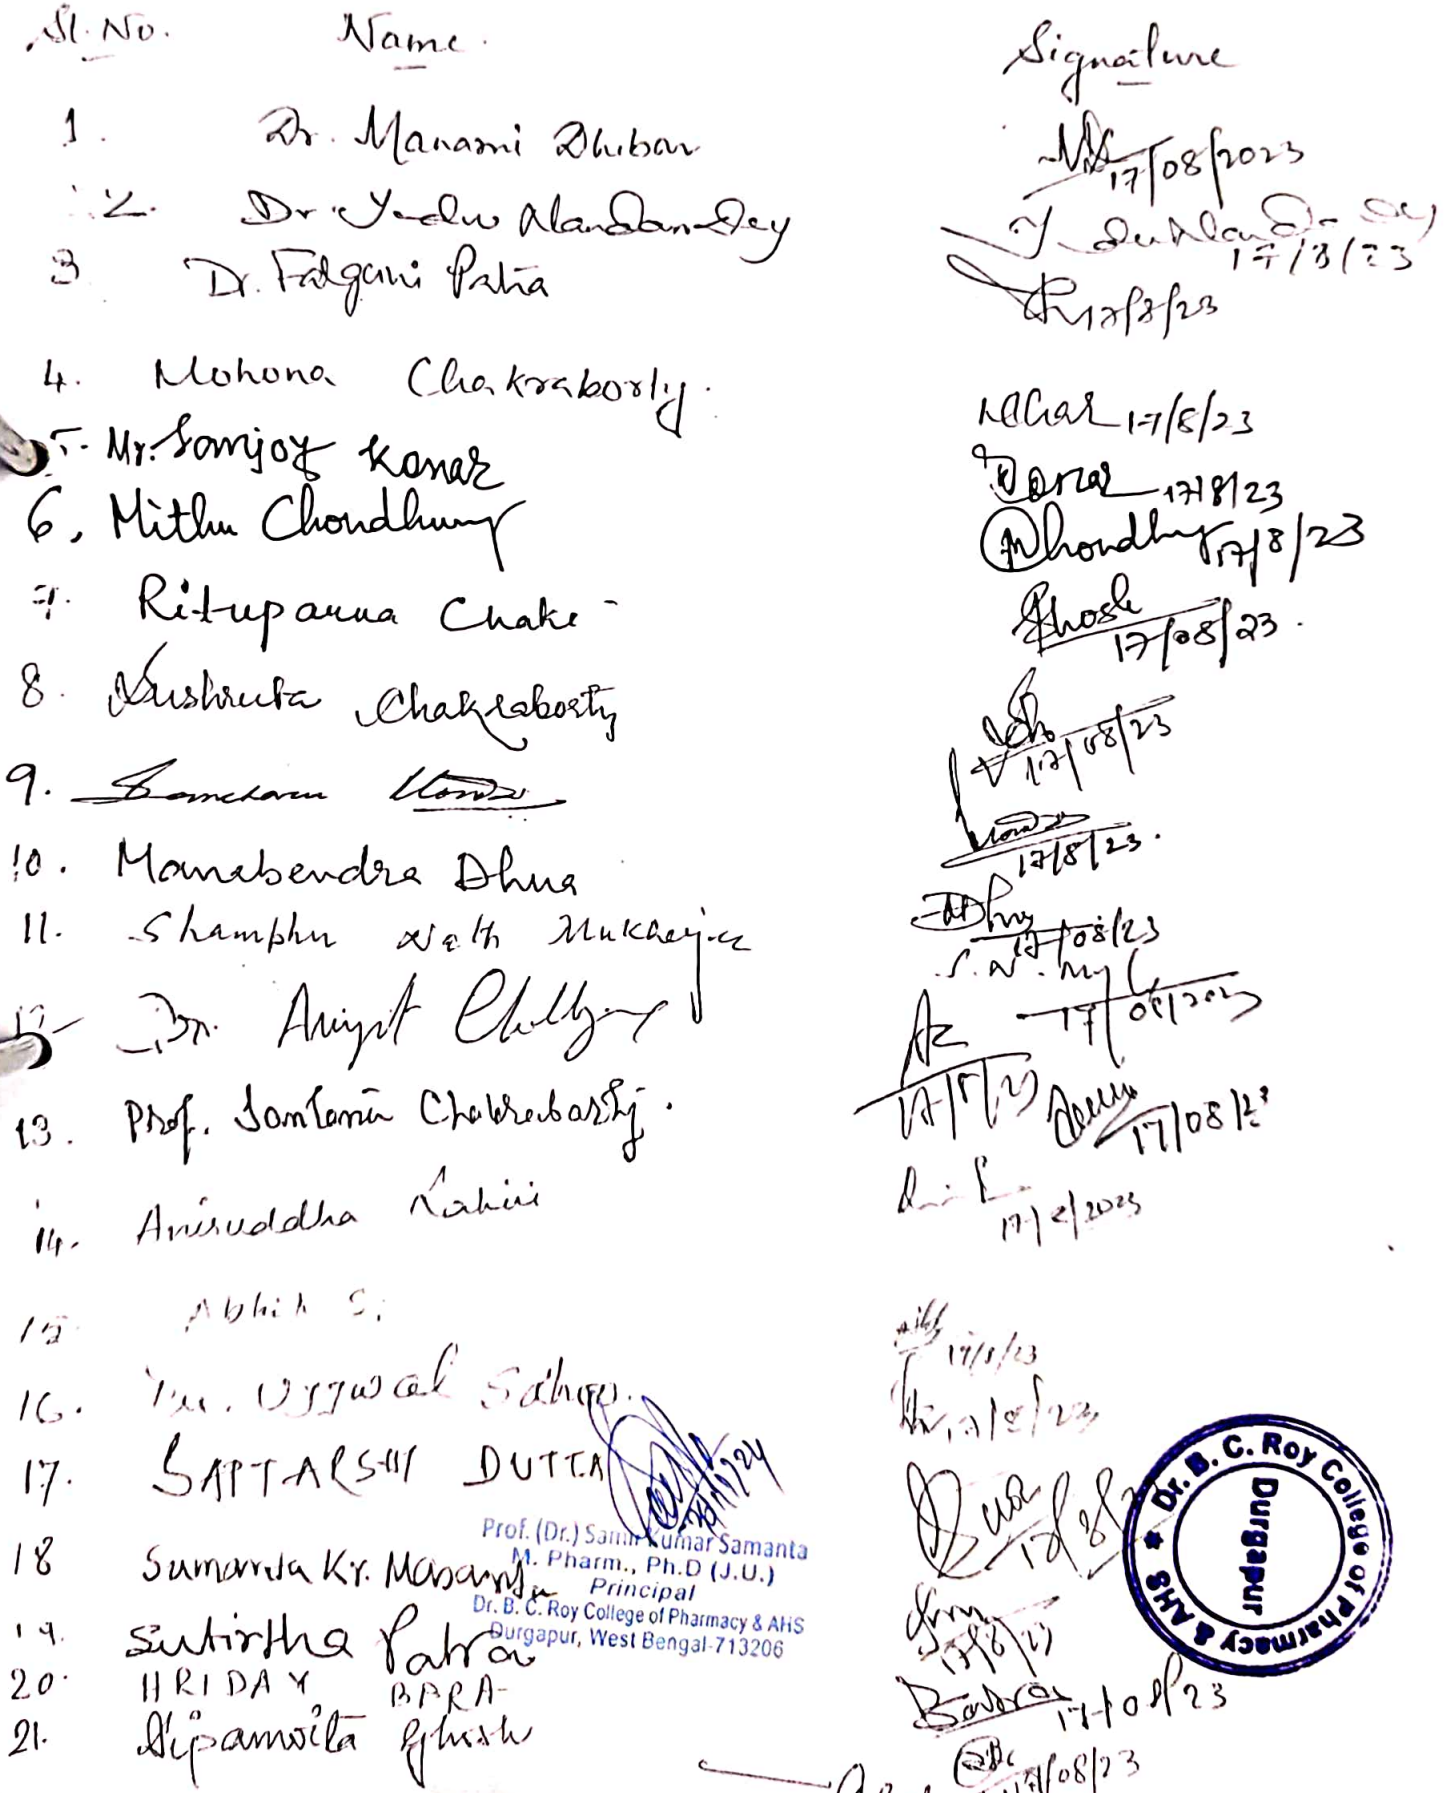 Sl. No. Name. Signature
1. Dr. Manami Dhibar 17/08/2023
2. Dr. Yadu Nandan Dey 17/8/23
3 Dr. Falguni Patra 17/8/23
4. Mohona Chakraborty. 17/8/23
5. Mr. Sanjoy Konar Konar 17/8/23
6. Mithu Chondhury Mchondhury 17/8/23
7. Rituparna Chaki Ghosh 17/08/23.
8. Sushruta Chakraborty 17/08/23
9. 17/8/23.
10. Manabendra Dhua 17/08/23
11. Shambhu Nath Mukherjee S. N. 17/08/2023
12 Dr. Arijit 17/8/23
13. Prof. Santanu Chakrabarty. 17/08/23
14. Aniruddha Lahiri 17/8/2023
15 Abhik 17/8/23
16. Ujjwal Sahoo. 17/8/23
17. SAPTARSHI DUTTA 17/8/
18 Sumanta Kr. 17/8/23
19. Sutirtha Patra
20. HRIDAY BARA 17/08/23
21. Dipanwita Ghosh 17/08/23
Prof. (Dr.) Samir Kumar Samanta
M. Pharm., Ph.D (J.U.)
Principal
Dr. B. C. Roy College of Pharmacy & AHS
Durgapur, West Bengal-713206
Dr. B. C. Roy College of Pharmacy & AHS
Durgapur